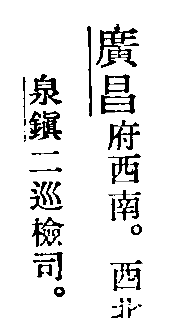 廣昌府西南。西北
泉鎭二巡檢司。